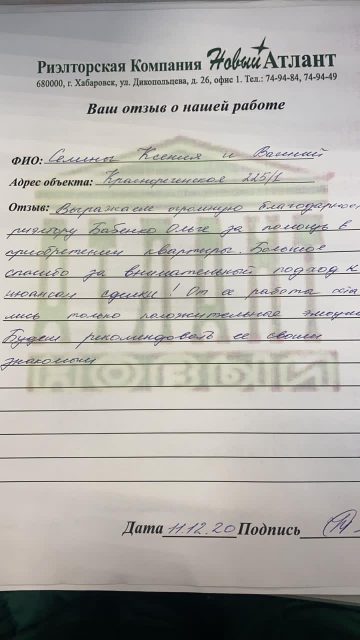 Риэлторская Компания Новый Атлант
680000, г. Хабаровск, ул. Дикопольцева, д. 26, офис 1. Тел.: 74-94-84, 74-94-49
Ваш отзыв о нашей работе
ФИО: Селины Ксения и Василий
Адрес объекта: Краснореченское 225/1
Отзыв: Выражаем огромную благодарнос
риэлтору Бабенко Ольге за помощь в
приобретении квартиры. Большое
спасибо за внимательный подход к
нюансам сделки! От ее работы оста
лись только положительные эмоци
Будем рекомендовать ее своим
знакомым
Дата 11.12.20 Подпись